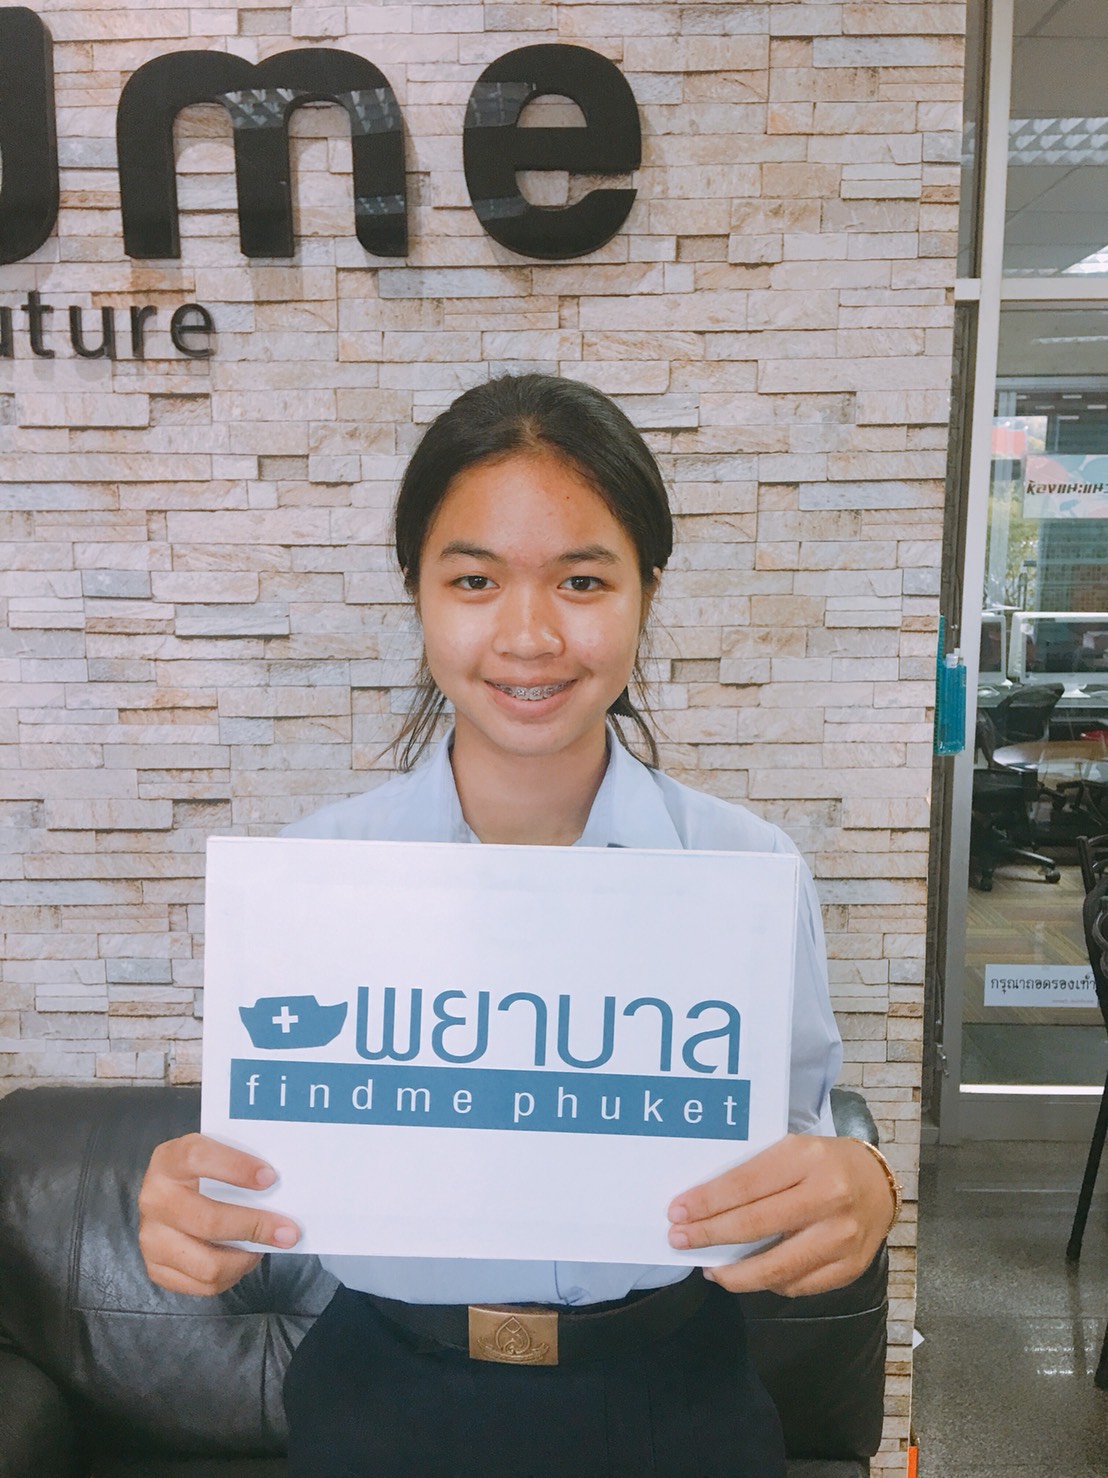 me
uture
ห้องแนะแนว
พยาบาล
findme phuket
กรุณาถอดรองเท้า